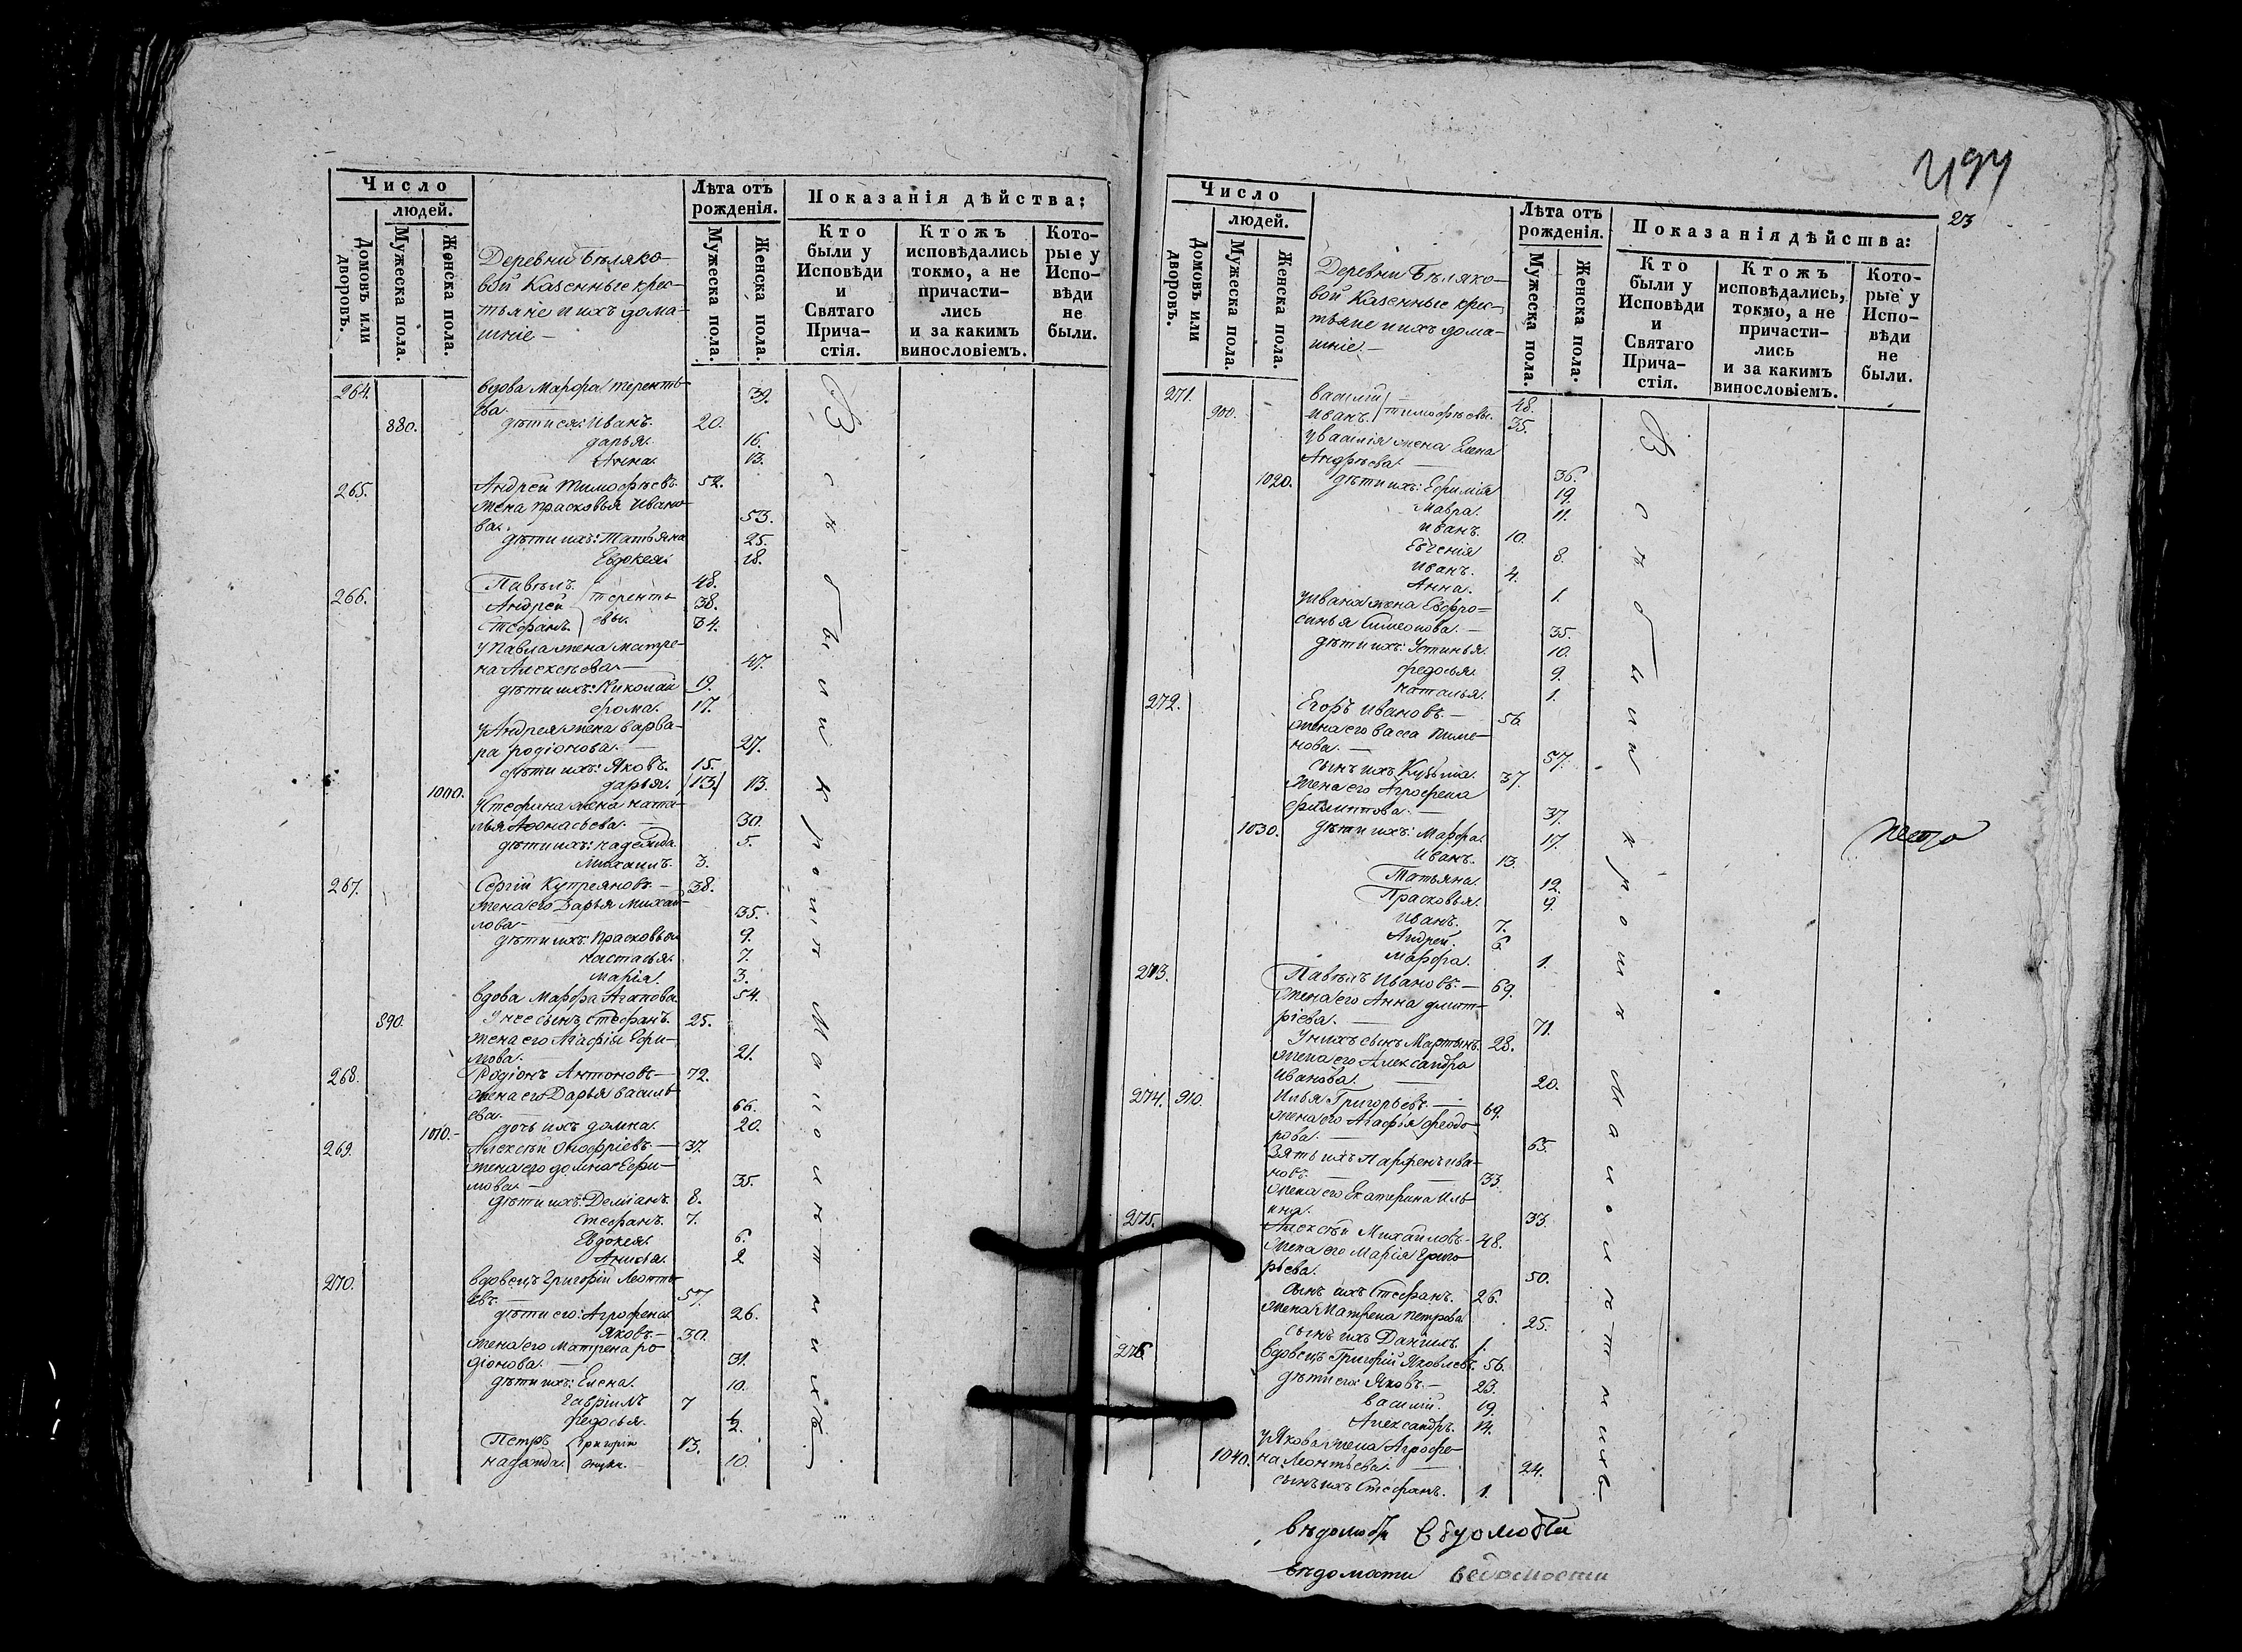 Число
людей.
Домовъ или дворовъ.
Мужеска пола.
Женска пола.
Деревни Бѣляко-
вой Казенные крес-
тьяне и ихъ дома-
шніе —
Лѣта отъ
рожденія.
Мужеска пола.
Женска пола.
Показанія дѣйства:
Кто
были у
Исповѣди
и
Святаго
Прича-
стія.
Ктожъ
исповѣдались
токмо, а не
причасти-
лись
и за какимъ
винословіемъ.
Кото-
рые у
Испо-
вѣди
не
были.
264. вдова Марфа Теренть-
ева. — 39.
880. дѣти ея: Иванъ. 20.
Дарья. 16.
Анна. 13.
265. Андрей Тимофѣевъ. 52.
жена Прасковья Ивано-
ва. 53.
дѣти ихъ: Татьяна 25.
Евдокея. 18.
266. Павелъ. 48.
Андрей Теренть- 38.
Стефанъ. евы. 34.
у Павла жена Матре-
на Алексѣева — 47.
дѣти ихъ: Николай 19.
Фома. 17.
у Андрея жена Варва-
ра Родіонова. — 27.
дѣти ихъ: Яковъ. 15.
1000. Дарья. (13) 13.
у Стефана жена Ната-
лья Афонасьева. — 30.
дѣти ихъ: Надежда. 5.
Михаилъ. 3.
267. Сергій Купреяновъ. — 38.
жена его Дарья Михай-
лова — 35.
дѣти ихъ: Прасковья 9.
Настасья. 7.
Марія. 3.
вдова Марфа Агапова. 54.
890. у нее сынъ Стефанъ. 25.
жена его Агафія Ефи-
мова. 21.
268. Родіонъ Антоновъ — 72.
жена его Дарья Василь-
ева. — 66.
1010. дочь ихъ Домна. 20.
269. Алексѣй Онофріевъ. — 37.
жена его Домна Ефи-
мова. — 35.
дѣти ихъ: Деміанъ. 8.
Стефанъ. 7.
Евдокея. 6.
Анисья. 2
270. вдовецъ Григорій Леонть-
евъ. — 57.
дѣти его: Агрофена. 26.
Яковъ. — 30.
жена его Матрена Ро-
діонова. — 31.
дѣти ихъ: Елена. 10.
Гавріилъ 7
Федосья. 2.
Петръ Григорія 13.
Надежда. внуки. 10.
Всѣ были у ... малолѣтнихъ.
23
Число
людей.
Домовъ или дворовъ.
Мужеска пола.
Женска пола.
Деревни Бѣляко-
вой Казенные крес-
тьяне и ихъ дома-
шніе —
Лѣта отъ
рожденія.
Мужеска пола.
Женска пола.
Показанія дѣйства:
Кто
были у
Исповѣди
и
Святаго
Прича-
стія.
Ктожъ
исповѣдались,
токмо, а не
причасти-
лись
и за какимъ
винословіемъ.
Кото-
рые у
Испо-
вѣди
не
были.
271. Василій 48.
900. Иванъ. Тимофѣевы. 35.
у Василія жена Елена
Андрѣева. — 36.
1020. дѣти ихъ: Ефимія 19.
Мавра. 11.
Иванъ. 10.
Евгенія 8.
Иванъ. 4.
Анна. 1.
у Ивана жена Евфро-
синья Симеонова. — 35.
дѣти ихъ: Устинья. 10.
Федосья. 9.
Наталья. 1.
272. Егоръ Ивановъ. — 56.
жена его Васса Пиме-
нова. — 57.
сынъ ихъ Кузьма. 37.
жена его Агрофена
Филиппова. — 37.
1030. дѣти ихъ: Марфа. 17.
Иванъ. 13.
Татьяна. 12.
Прасковья. 9.
Иванъ. 7.
Андрей. 6.
Марфа. 1.
273. Павелъ Ивановъ. — 69.
жена его Анна Дмит-
ріева. — 71.
у нихъ сынъ Мартынъ. 28.
жена его Александра
Иванова. — 20.
274. 910. Илья Григорьевъ. — 69.
жена его Агафія Феодо-
рова. — 65.
Зять ихъ Парфенъ Ива-
новъ. — 33.
жена его Екатерина Иль-
ина. 33.
275. Алексѣй Михайловъ. — 48.
жена его Марія Григо-
рьева. 50.
сынъ ихъ Стефанъ. 26.
жена Матрена Петрова. 25.
сынъ ихъ Даніилъ. 1.
276. вдовецъ Григорій Яковлевъ. 56.
дѣти его: Яковъ. — 23.
Василій. 19.
Александръ. 14.
у Якова жена Агрофе-
1040. на Леонтьева. — 24.
сынъ ихъ Стефанъ. 1.
Всѣ были ... кромѣ малолѣтнихъ.
вѣдомости
вѣдомости ведомости